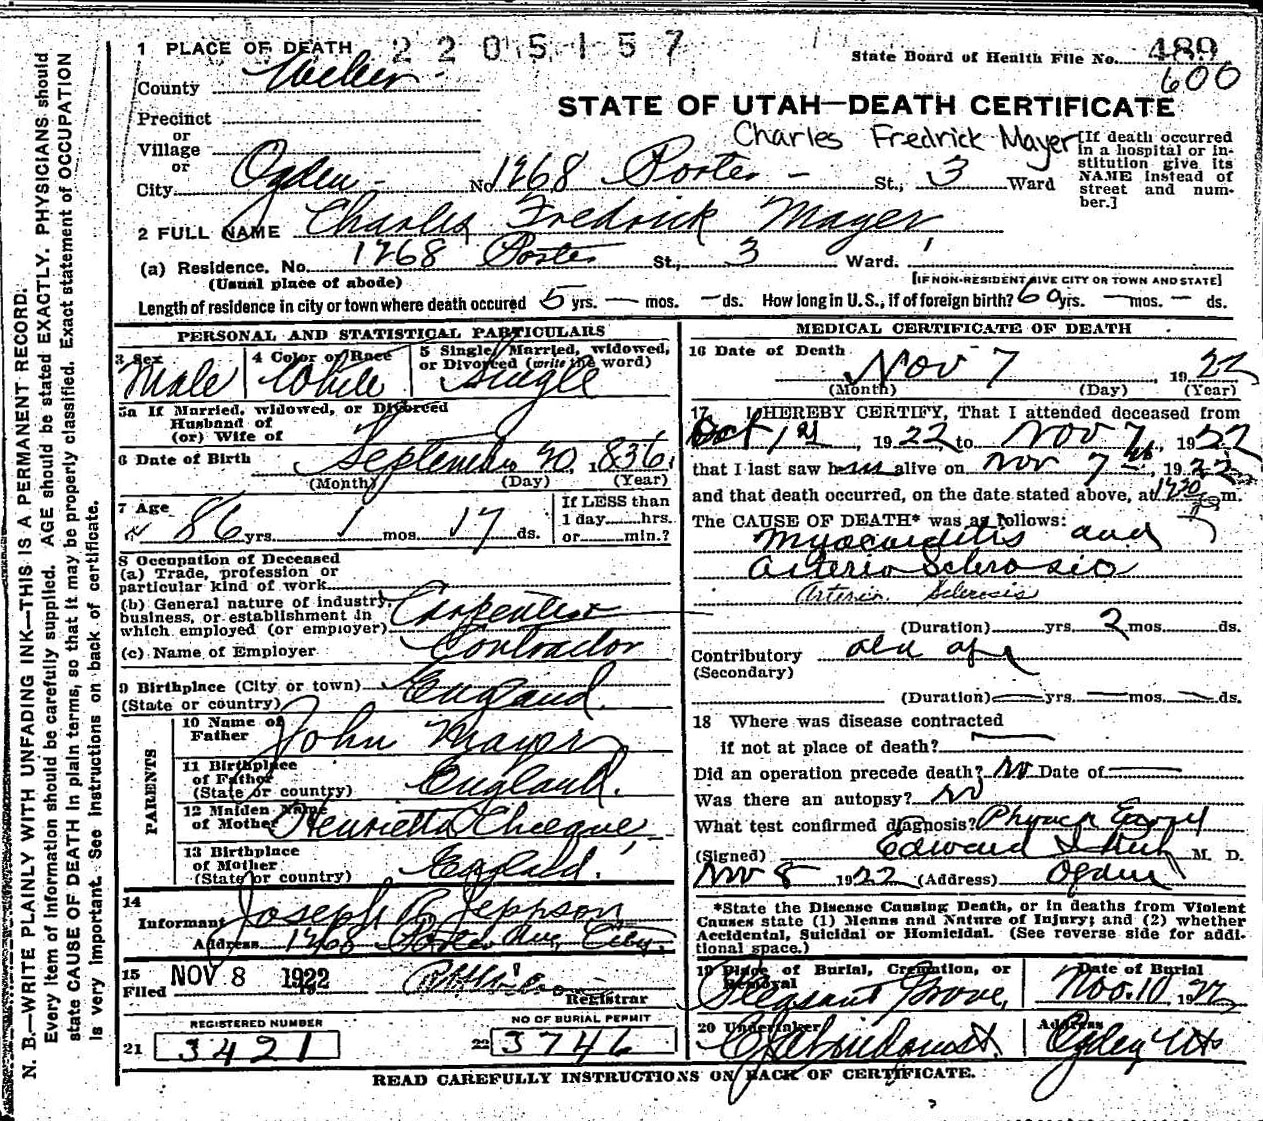 1 PLACE OF DEATH 2 2 0 5 1 5 7
State Board of Health File No. 489
600
County Weber
STATE OF UTAH—DEATH CERTIFICATE
Precinct
or
Village
or
City Ogden No. 1268 Porter St., 3 Ward
Charles Fredrick Mayer
[If death occurred in a hospital or institution give its NAME instead of street and number.]
2 FULL NAME Charles Fredrick Mayer
(a) Residence. No. 1268 Porter St., 3 Ward.
(Usual place of abode) [IF NON-RESIDENT GIVE CITY OR TOWN AND STATE]
Length of residence in city or town where death occured 5 yrs. — mos. — ds. How long in U. S., if of foreign birth? 60 yrs. — mos. — ds.
PERSONAL AND STATISTICAL PARTICULARS
3 Sex
Male
4 Color or Race
White
5 Single, Married, widowed, or Divorced (write the word)
Single
5a If Married, widowed, or Divorced
Husband of
(or) Wife of
6 Date of Birth September 20, 1836
(Month) (Day) (Year)
7 Age
86 yrs. 1 mos. 17 ds.
If LESS than
1 day......hrs.
or......min.?
8 Occupation of Deceased
(a) Trade, profession or
particular kind of work
(b) General nature of industry,
business, or establishment in
which employed (or employer) Carpenter
(c) Name of Employer Contractor
9 Birthplace (City or town)
(State or country) England.
PARENTS
10 Name of
Father John Mayer
11 Birthplace
of Father
(State or country) England.
12 Maiden Name
of Mother Henrietta
13 Birthplace
of Mother
(State or country) England.
14
Informant Joseph R. Jeppson
Address 1268 Porter Ave, City.
15
Filed NOV 8 1922
Registrar
REGISTERED NUMBER
21 3421
NO OF BURIAL PERMIT
22 3746
MEDICAL CERTIFICATE OF DEATH
16 Date of Death
Nov 7, 1922
(Month) (Day) (Year)
17 I HEREBY CERTIFY, That I attended deceased from
Oct 1st, 1922 to Nov 7th, 1922
that I last saw him alive on Nov 7th, 1922
and that death occurred, on the date stated above, at m.
The CAUSE OF DEATH* was as follows:
Myocarditis and
Arterio Sclerosis
Arterio Sclerosis
(Duration) yrs. 2 mos. ds.
Contributory old age
(Secondary)
(Duration) — yrs. — mos. — ds.
18 Where was disease contracted
if not at place of death? —
Did an operation precede death? No Date of —
Was there an autopsy? No
What test confirmed diagnosis?
(Signed) Edward I. M. D.
Nov 8 1922 (Address) Ogden
*State the Disease Causing Death, or in deaths from Violent
Causes state (1) Means and Nature of Injury; and (2) whether
Accidental, Suicidal or Homicidal. (See reverse side for addi-
tional space.)
19 Place of Burial, Cremation, or
Removal
Pleasant Grove,
Date of Burial
Nov. 10, 1922
20 Undertaker
Address
Ogden Ut
READ CAREFULLY INSTRUCTIONS ON BACK OF CERTIFICATE.
N. B.—WRITE PLAINLY WITH UNFADING INK—THIS IS A PERMANENT RECORD.
Every item of information should be carefully supplied. AGE should be stated EXACTLY. PHYSICIANS should
state CAUSE OF DEATH in plain terms, so that it may be properly classified. Exact statement of OCCUPATION
is very important. See instructions on back of certificate.